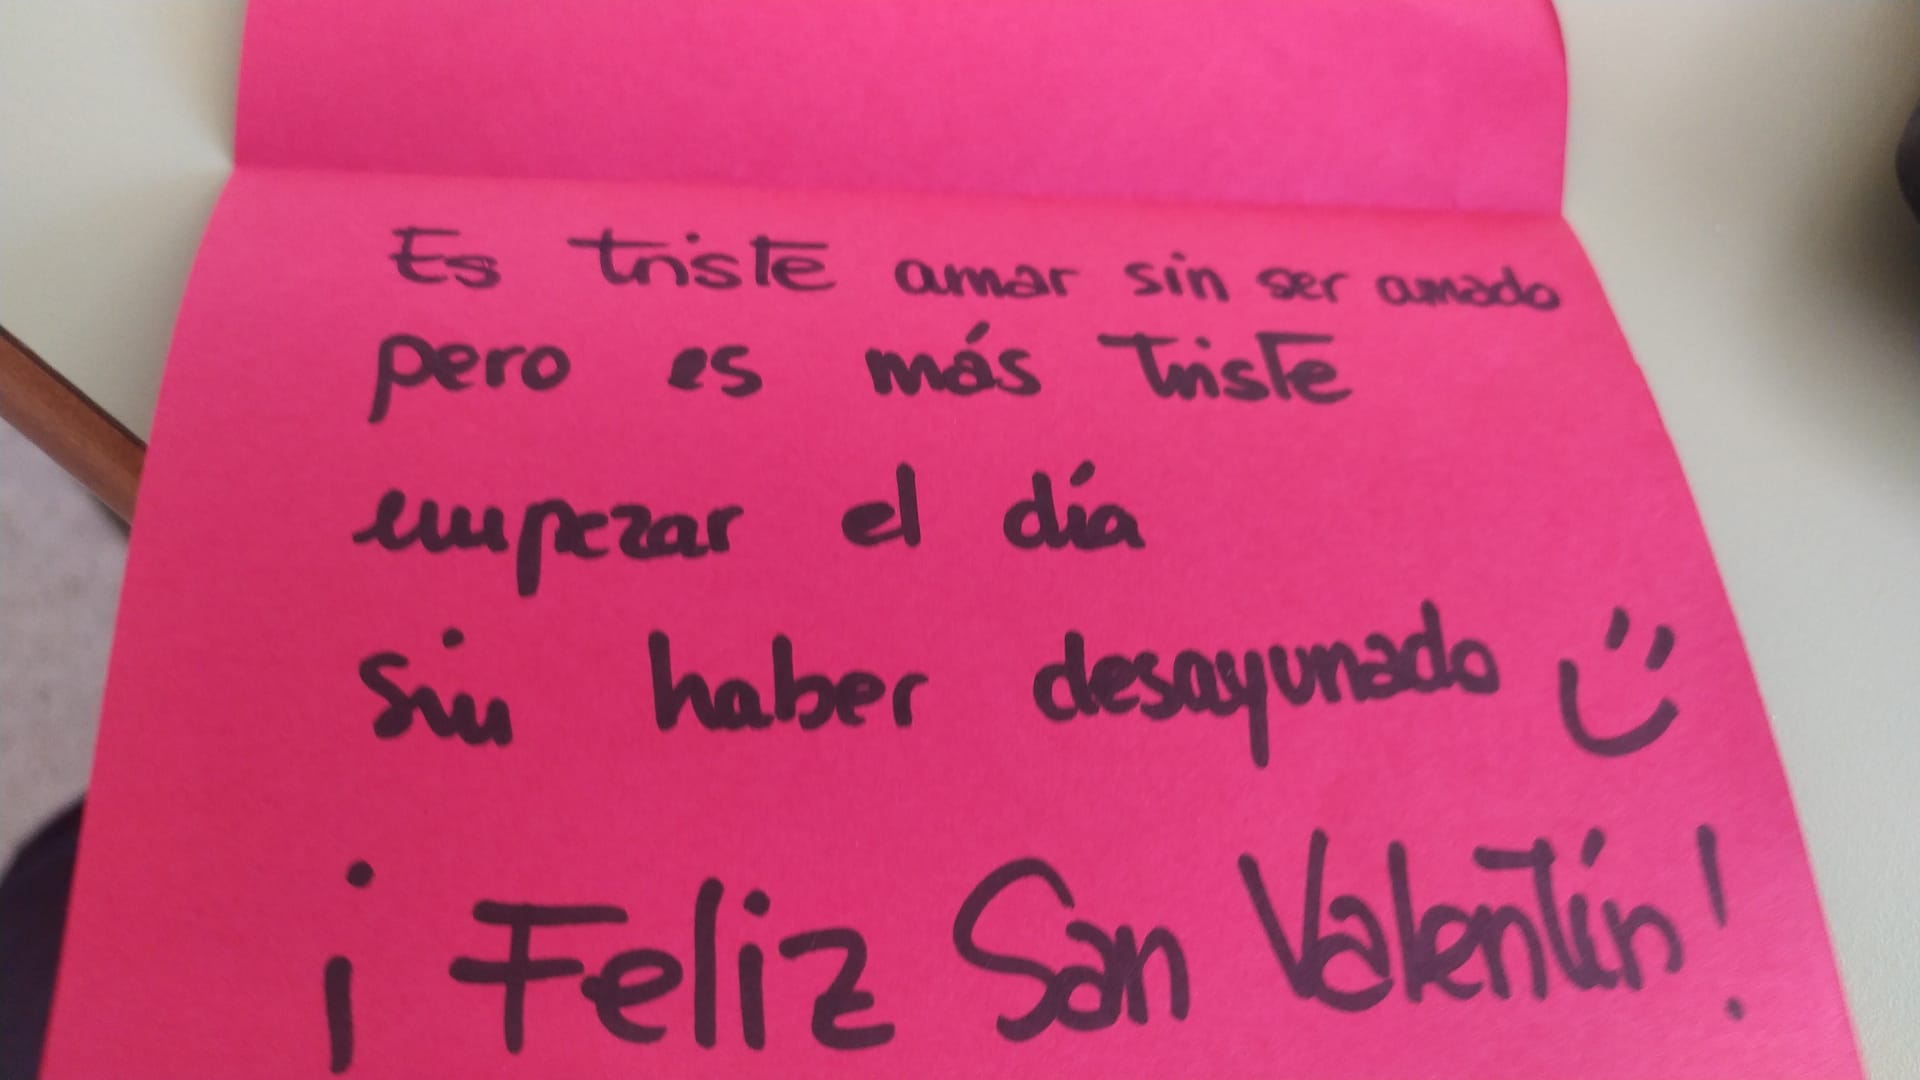 Es triste amar sin ser amado
pero es más triste
empezar el día
sin haber desayunado
¡Feliz San Valentín!